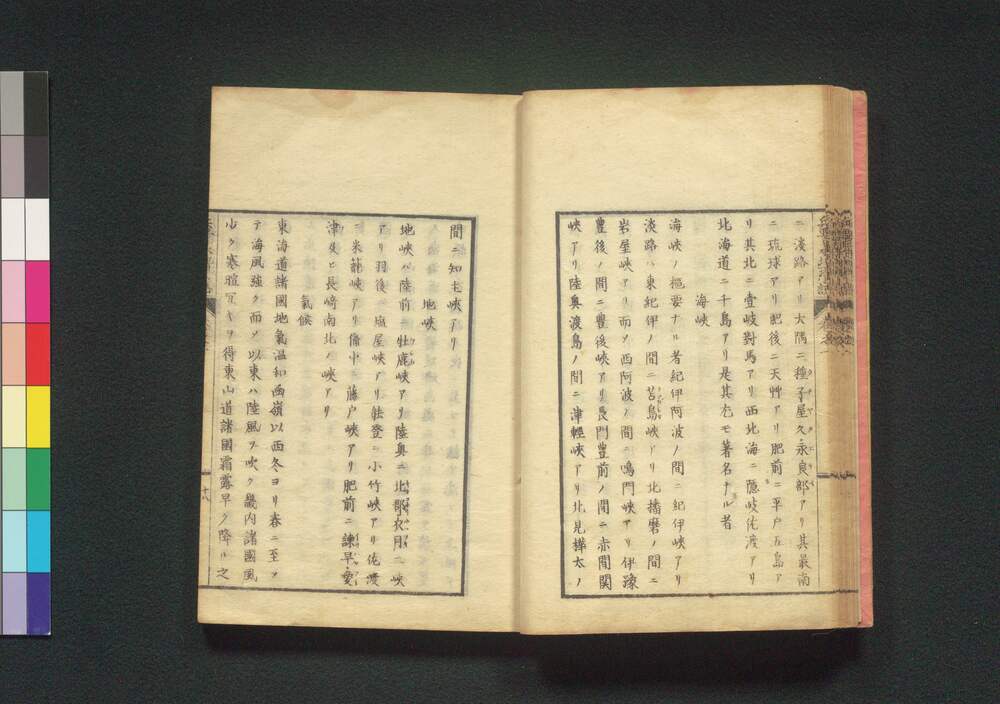 ニ淡路アリ大隅ニ種子屋久永良部アリ其最南
ニ琉球アリ肥後ニ天艸アリ肥前ニ平戸五島ア
リ其北ニ壹岐對馬アリ西北海ニ隠岐佐渡アリ
北海道ニ千島アリ是其尤モ著名ナル者
海峡
海峡ノ樞要ナル者紀伊阿波ノ間ニ紀伊峡アリ
淡路ハ東紀伊ノ間ニ苫島峡アリ北播磨ノ間ニ
岩屋峡アリ而ソ西阿波ノ間ニ鳴門峡アリ伊豫
豊後ノ間ニ豊後峡アリ長門豊前ノ間ニ赤間関
峡アリ陸奥渡島ノ間ニ津輕峡アリ北見樺太ノ
間ニ知主峡アリ
地峡
地峡ハ陸前ニ牡鹿峡アリ陸奥ニ北郡衣月ニ峡
アリ羽後ニ塩屋峡アリ能登ニ小竹峡アリ佐渡
ニ米籠峡アリ備中ニ藤戸峡アリ肥前ニ諫早愛
津及ヒ長﨑南北ノ峡アリ
氣候
東海道諸國地氣温和函嶺以西冬ヨリ春ニ至ッ
テ海風強ク而ソ以東ハ陸風ヲ吹ク畿内諸國風
少ク寒暄冝キヲ得東山道諸國霜露早ク降ル之
十八